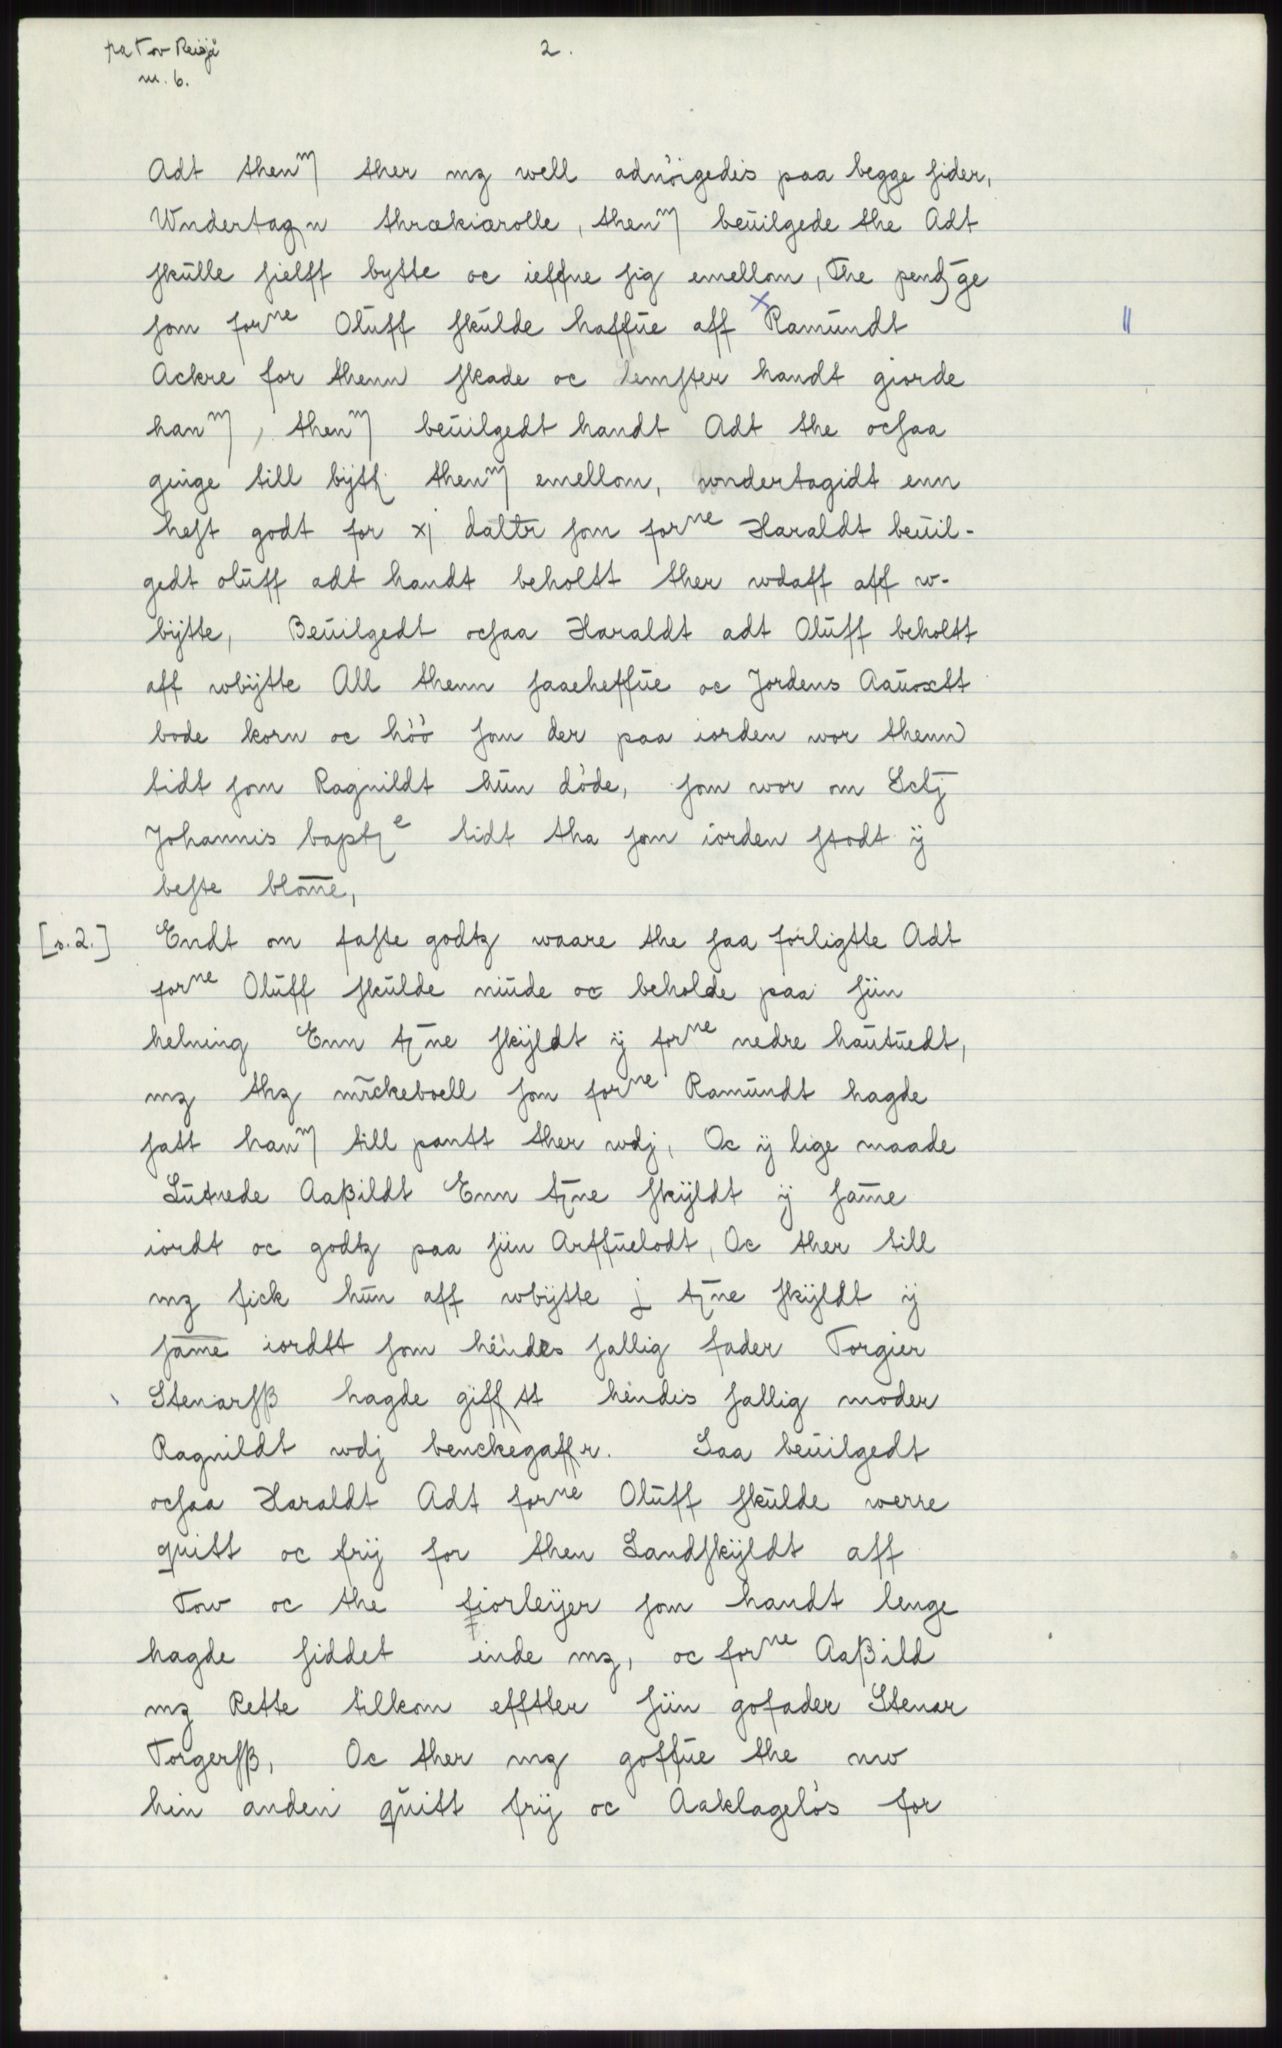 pa Tov Reisjå 2.
m. 6.
Adt thenm ther mz well adnöigedis paa begge sider,
Wndertagen thrækiærolle, thenm beuilgede the Adt
skulle sielff bytte oc ieffne sig emellom, The pendzge
som forne Oluff skulde haffue aff x Ramundt ||
Ackre for thenn skade oc lemster handt giorde
hanm, thenm beuilgedt handt Adt the ocsaa
geinge till bÿtt thenm emellom, wndertagidt enn
hest godt for xj daltr som forne Haraldt beuil-
gedt oluff adt handt beholtt ther wdaff aff w-
bÿtte, Beuilgedt ocsaa Haraldt adt Oluff beholtt
aff wbÿtte All thenn saaeheffue oc Jordens Aauoxtt
bode korn oc höö som der paa iorden wor thenn
tidt som Ragnildt hun döde, som wor om Sctj
Johannis baptze tidt tha som iorden stodt ÿ
beste blome,
[s. 2.] Endt om faste godtz waare the saa forligtte Adt
forne Oluff skulde niude oc beholde paa siin
helning Enn tzne skÿldt ÿ forne nedre hautuedt,
mz thz mrckeboell som forne Ramundt hagde
satt hanm till pantt ther wdj, Oc ÿ lige maade
Lutnede Aaßildt Enn tzne skÿldt ÿ same
iordt oc godtz paa siin Arffuelodt, Oc ther till
mz fick hun aff wbÿtte j tzne skÿldt ÿ
same iordtt som hendes sallig fader Torgier
Stenarsß hagde gifftt hendis sallig moder
Ragnildt wdj benckegaffr. Saa beuilgedt
ocsaa Haraldt Adt forne Oluff skulde werre
quitt oc frÿ for then Landskÿldt aff
Tow oc the fiorleÿer som handt lenge
hagde siddet inde mz, oc forne Aaßild
mz Rette tilkom efftter siin gofader Stenar
Torgersß, Oc ther mz goffue the nw
hin anden quitt frÿ oc Aaklagelös for